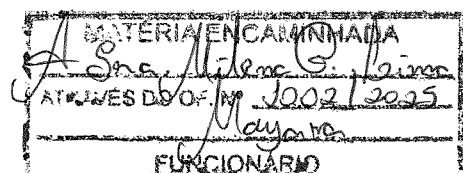 MATÉRIA ENCAMINHADA
A Sra. Milena S. Lima
ATRAVÉS DO OF. Nº 1002/2025
Mayara
FUNCIONÁRIO